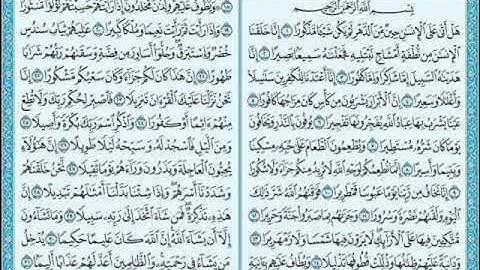 بِسْمِ اللَّهِ الرَّحْمَٰنِ الرَّحِيمِ
هَلْ أَتَىٰ عَلَى الْإِنسَانِ حِينٌ مِّنَ الدَّهْرِ لَمْ يَكُن شَيْئًا مَّذْكُورًا ١ إِنَّا خَلَقْنَا
الْإِنسَانَ مِن نُّطْفَةٍ أَمْشَاجٍ نَّبْتَلِيهِ فَجَعَلْنَاهُ سَمِيعًا بَصِيرًا ٢ إِنَّا
هَدَيْنَاهُ السَّبِيلَ إِمَّا شَاكِرًا وَإِمَّا كَفُورًا ٣ إِنَّا أَعْتَدْنَا لِلْكَافِرِينَ سَلَاسِلَا
وَأَغْلَالًا وَسَعِيرًا ٤ إِنَّ الْأَبْرَارَ يَشْرَبُونَ مِن كَأْسٍ كَانَ مِزَاجُهَا كَافُورًا ٥
عَيْنًا يَشْرَبُ بِهَا عِبَادُ اللَّهِ يُفَجِّرُونَهَا تَفْجِيرًا ٦ يُوفُونَ بِالنَّذْرِ وَيَخَافُونَ
يَوْمًا كَانَ شَرُّهُ مُسْتَطِيرًا ٧ وَيُطْعِمُونَ الطَّعَامَ عَلَىٰ حُبِّهِ مِسْكِينًا
وَيَتِيمًا وَأَسِيرًا ٨ إِنَّمَا نُطْعِمُكُمْ لِوَجْهِ اللَّهِ لَا نُرِيدُ مِنكُمْ جَزَاءً وَلَا شُكُورًا
٩ إِنَّا نَخَافُ مِن رَّبِّنَا يَوْمًا عَبُوسًا قَمْطَرِيرًا ١٠ فَوَقَاهُمُ اللَّهُ شَرَّ ذَٰلِكَ
الْيَوْمِ وَلَقَّاهُمْ نَضْرَةً وَسُرُورًا ١١ وَجَزَاهُم بِمَا صَبَرُوا جَنَّةً وَحَرِيرًا ١٢
مُّتَّكِئِينَ فِيهَا عَلَى الْأَرَائِكِ لَا يَرَوْنَ فِيهَا شَمْسًا وَلَا زَمْهَرِيرًا ١٣
وَدَانِيَةً عَلَيْهِمْ ظِلَالُهَا وَذُلِّلَتْ قُطُوفُهَا تَذْلِيلًا ١٤ وَيُطَافُ عَلَيْهِم بِآنِيَةٍ
١٨ وَيَطُوفُ عَلَيْهِمْ وِلْدَانٌ مُّخَلَّدُونَ إِذَا رَأَيْتَهُمْ حَسِبْتَهُمْ لُؤْلُؤًا مَّنثُورًا
١٩ وَإِذَا رَأَيْتَ ثَمَّ رَأَيْتَ نَعِيمًا وَمُلْكًا كَبِيرًا ٢٠ عَالِيَهُمْ ثِيَابُ سُندُسٍ
خُضْرٌ وَإِسْتَبْرَقٌ وَحُلُّوا أَسَاوِرَ مِن فِضَّةٍ وَسَقَاهُمْ رَبُّهُمْ شَرَابًا
طَهُورًا ٢١ إِنَّ هَٰذَا كَانَ لَكُمْ جَزَاءً وَكَانَ سَعْيُكُم مَّشْكُورًا ٢٢ إِنَّا
نَحْنُ نَزَّلْنَا عَلَيْكَ الْقُرْآنَ تَنزِيلًا ٢٣ فَاصْبِرْ لِحُكْمِ رَبِّكَ وَلَا تُطِعْ
مِنْهُمْ آثِمًا أَوْ كَفُورًا ٢٤ وَاذْكُرِ اسْمَ رَبِّكَ بُكْرَةً وَأَصِيلًا ٢٥
وَمِنَ اللَّيْلِ فَاسْجُدْ لَهُ وَسَبِّحْهُ لَيْلًا طَوِيلًا ٢٦ إِنَّ هَٰؤُلَاءِ
يُحِبُّونَ الْعَاجِلَةَ وَيَذَرُونَ وَرَاءَهُمْ يَوْمًا ثَقِيلًا ٢٧ نَّحْنُ خَلَقْنَاهُمْ
وَشَدَدْنَا أَسْرَهُمْ وَإِذَا شِئْنَا بَدَّلْنَا أَمْثَالَهُمْ تَبْدِيلًا ٢٨ إِنَّ
هَٰذِهِ تَذْكِرَةٌ فَمَن شَاءَ اتَّخَذَ إِلَىٰ رَبِّهِ سَبِيلًا ٢٩ وَمَا تَشَاءُونَ
إِلَّا أَن يَشَاءَ اللَّهُ إِنَّ اللَّهَ كَانَ عَلِيمًا حَكِيمًا ٣٠ يُدْخِلُ
مَن يَشَاءُ فِي رَحْمَتِهِ وَالظَّالِمِينَ أَعَدَّ لَهُمْ عَذَابًا أَلِيمًا ٣١